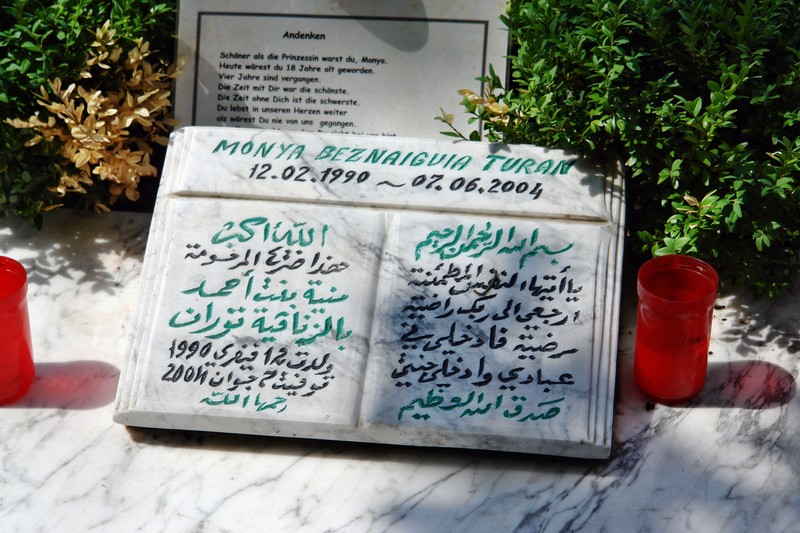 Andenken
Schöner als die Prinzessin warst du, Monya.
Heute wärest du 18 Jahre alt geworden.
Vier Jahre sind vergangen.
Die Zeit mit Dir war die schönste.
Die Zeit ohne Dich ist die schwerste.
Du lebst in unseren Herzen weiter
als wärest Du nie von uns gegangen.
MONYA BEZNAIGUIA TURAN
12.02.1990 ~ 07.06.2004
بسم الله الرحمن الرحيم
ياأيتها النفس المطمئنة
ارجعي الى ربك راضية
مرضية فادخلي في
عبادي وادخلي جنتي
صدق الله العظيم
الله أكبر
هذا ضريح المرحومة
منية بنت أحمد
بالزناقية توران
ولدت 12 فيفري 1990
توفيت 7 جوان 2004
رحمها الله